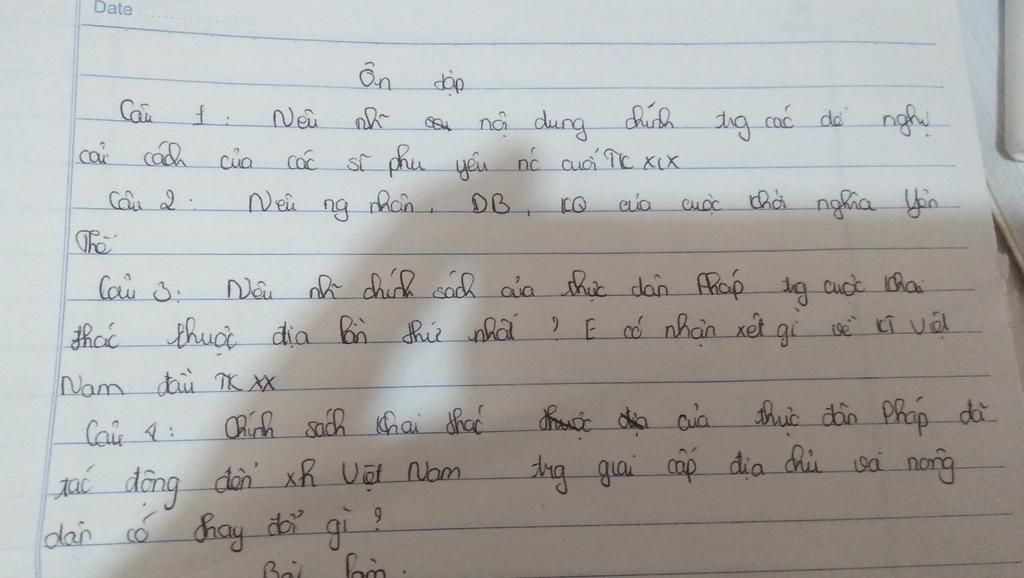 Date
Ôn tập
Câu 1: Nêu nh~ nội dung chính trg các đề nghị
cải cách của các sĩ phu yêu nc cuối TK XIX
Câu 2: Nêu ng nhân, DB, KQ của cuộc khởi nghĩa Yên
Thế
Câu 3: Nêu nh~ chính sách của thực dân Pháp trg cuộc khai
thác thuộc địa lần thứ nhất? E có nhận xét gì về kt Việt
Nam đầu TK XX
Câu 4: Chính sách khai thác của thực dân Pháp đã
tác động đến xh Việt Nam trg giai cấp địa chủ và nông
dân có thay đổi gì?
Bài làm.